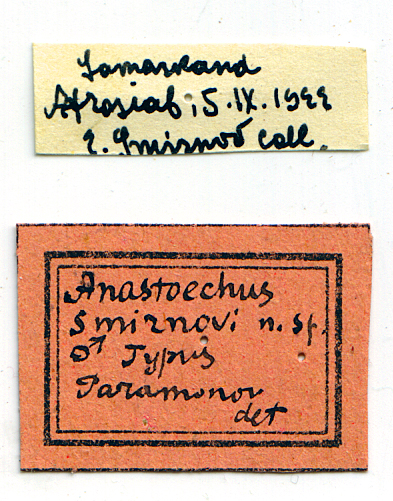 Samarkand
Afrosiab, 5.IX.1922
E. Smirnov coll.
Anastoechus
Smirnovi n. sp.
♂ Typus
Paramonov
det